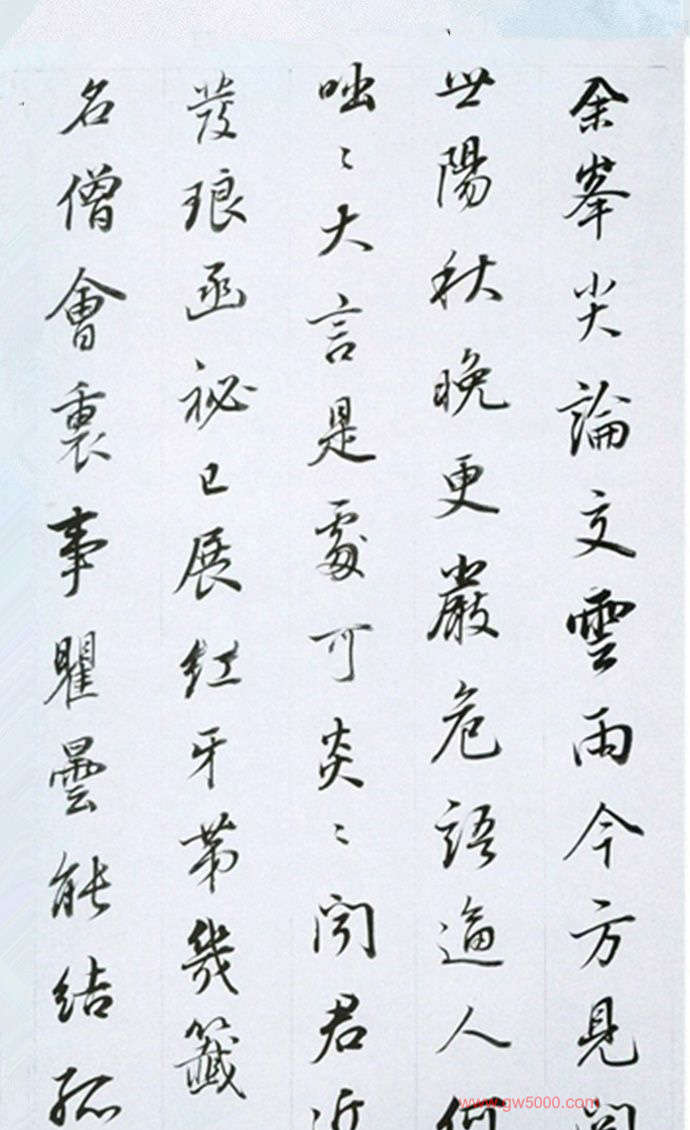 余峯尖論文雲雨今方見
世陽秋晚更嚴危語逼人何
咄〻大言是處可炎〻聞君近
發琅函祕已展紅牙第幾籤
名僧會裏事瞿曇能結孤
www.gw5000.com